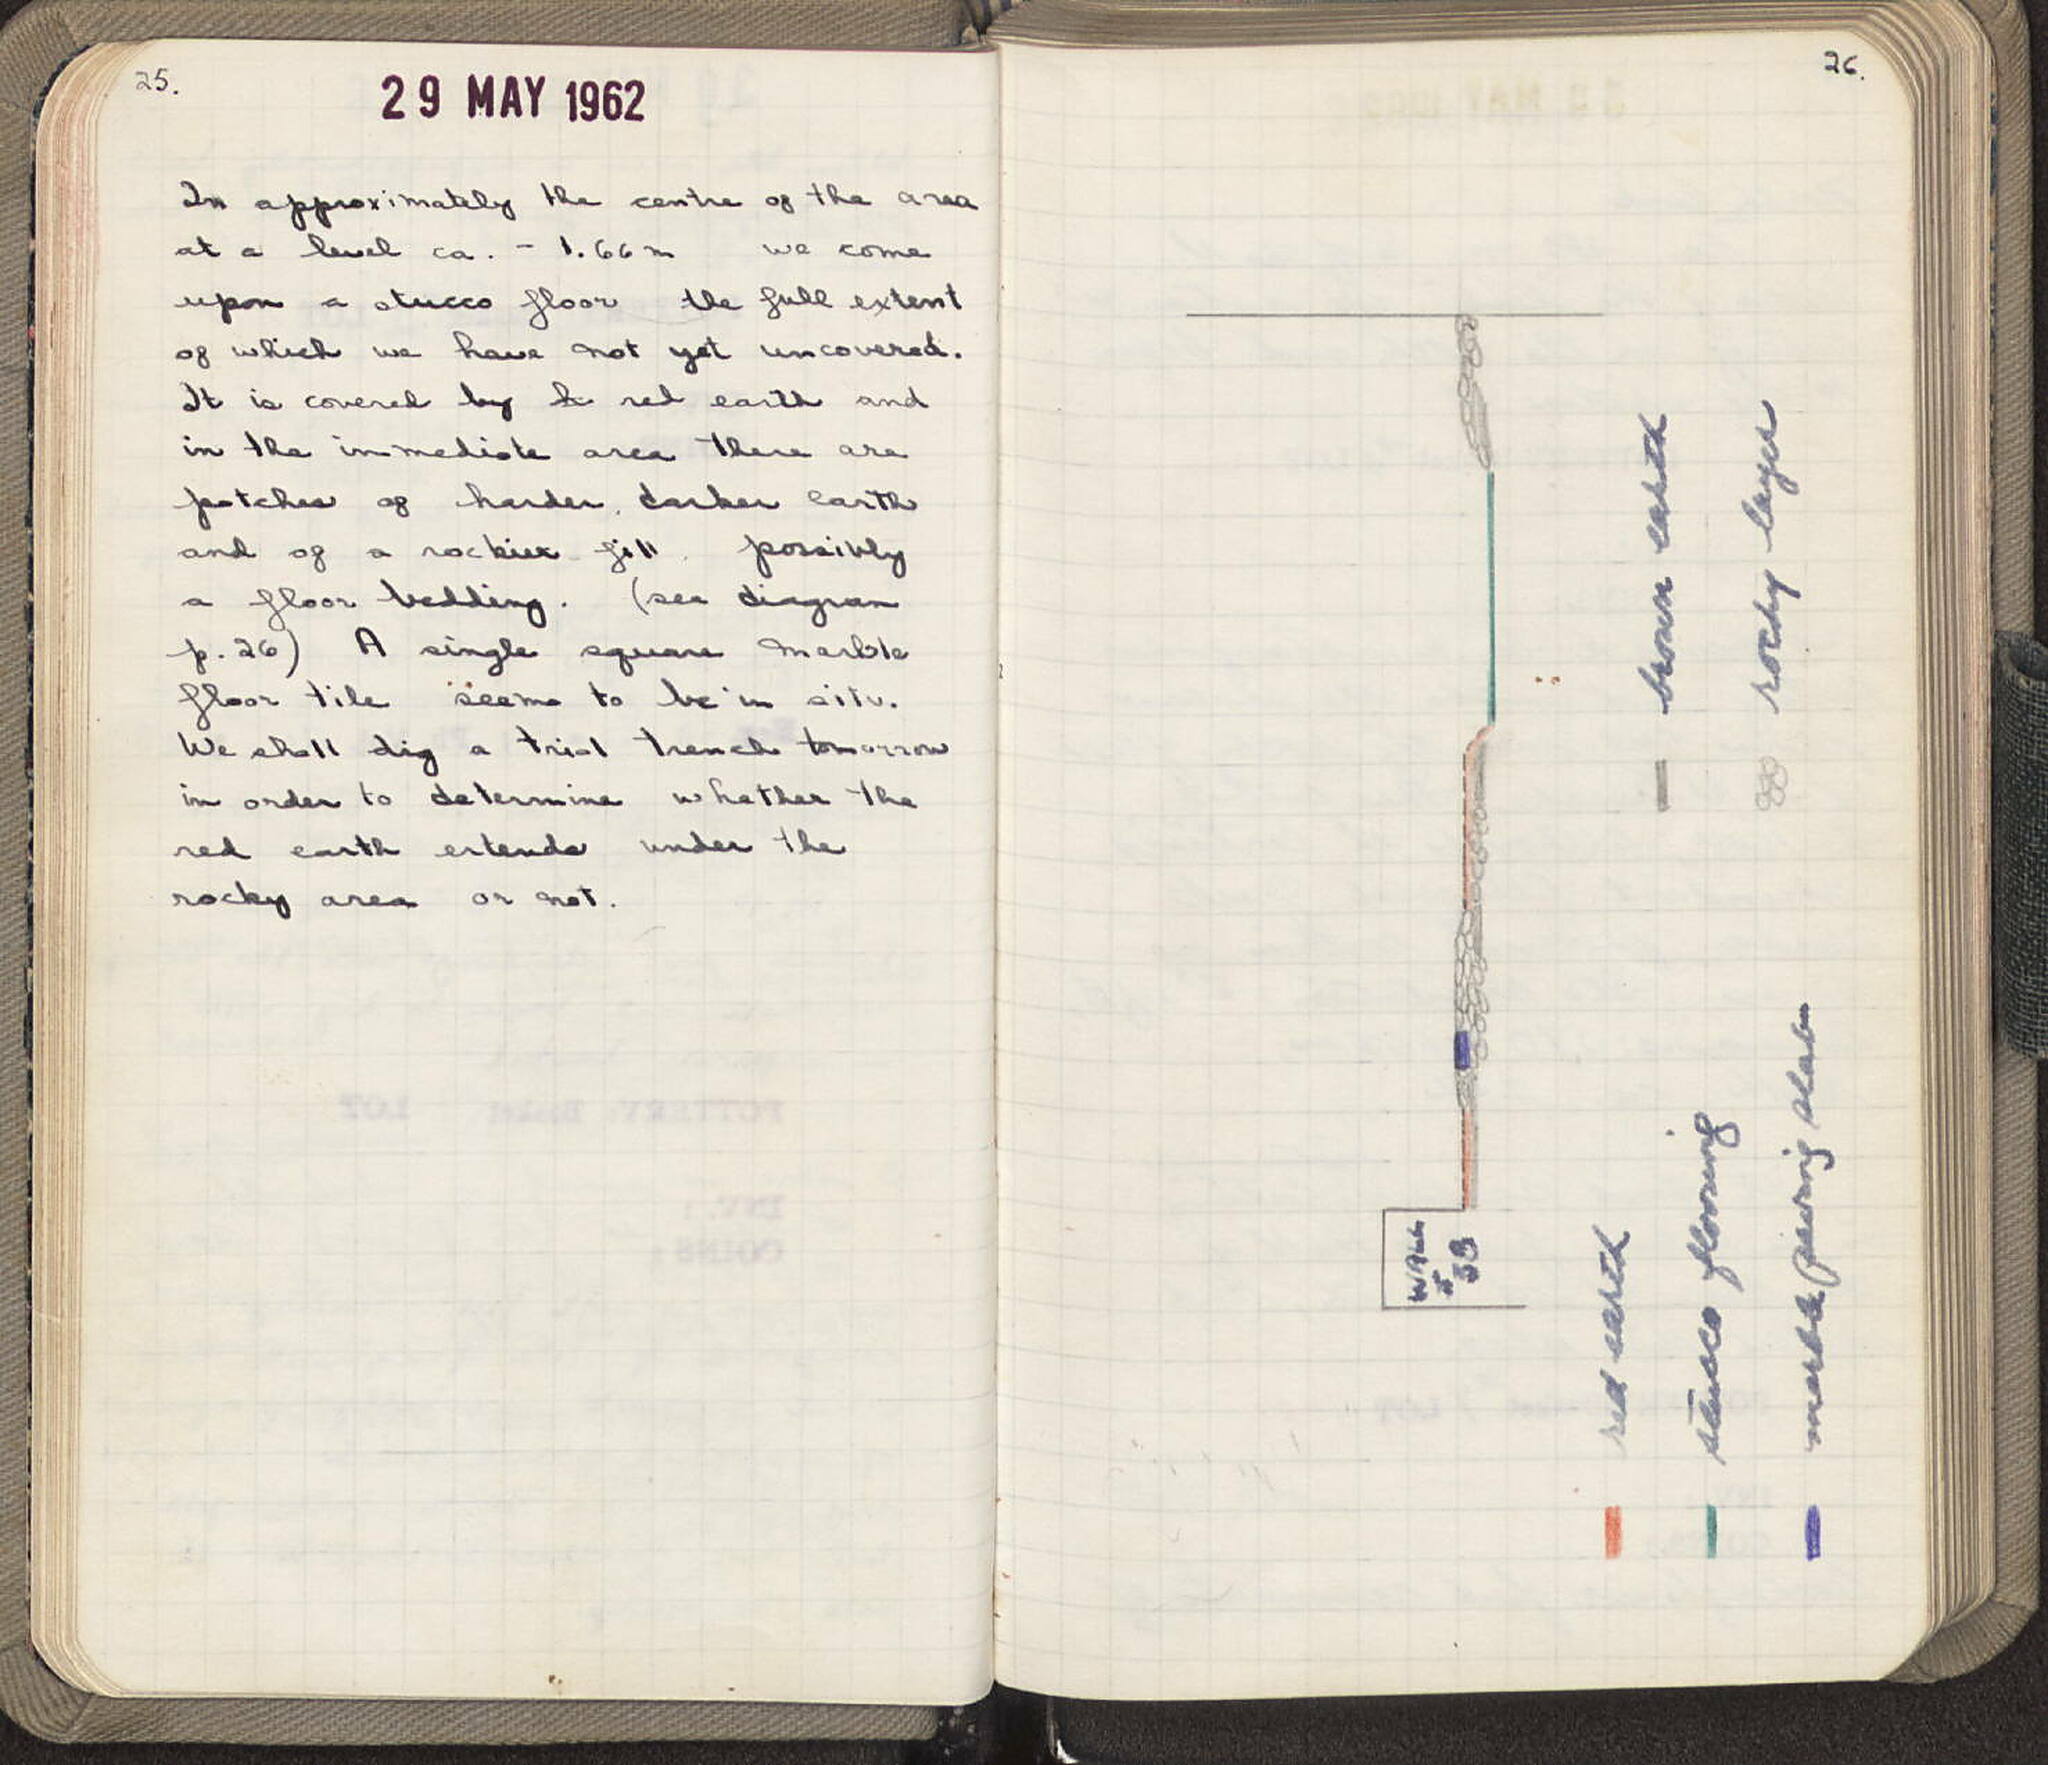 25.
29 MAY 1962
In approximately the centre of the area
at a level ca. - 1.66 m we come
upon a stucco floor the full extent
of which we have not yet uncovered.
It is covered by red earth and
in the immediate area there are
patches of harder, darker earth
and of a rockier fill, possibly
a floor bedding. (see diagram
p. 26) A single square marble
floor tile seems to be in situ.
We shall dig a trial trench tomorrow
in order to determine whether the
red earth extends under the
rocky area or not.
26.
WALL
38
red earth
stucco flooring
marble paving slab
brown earth
rocky layer